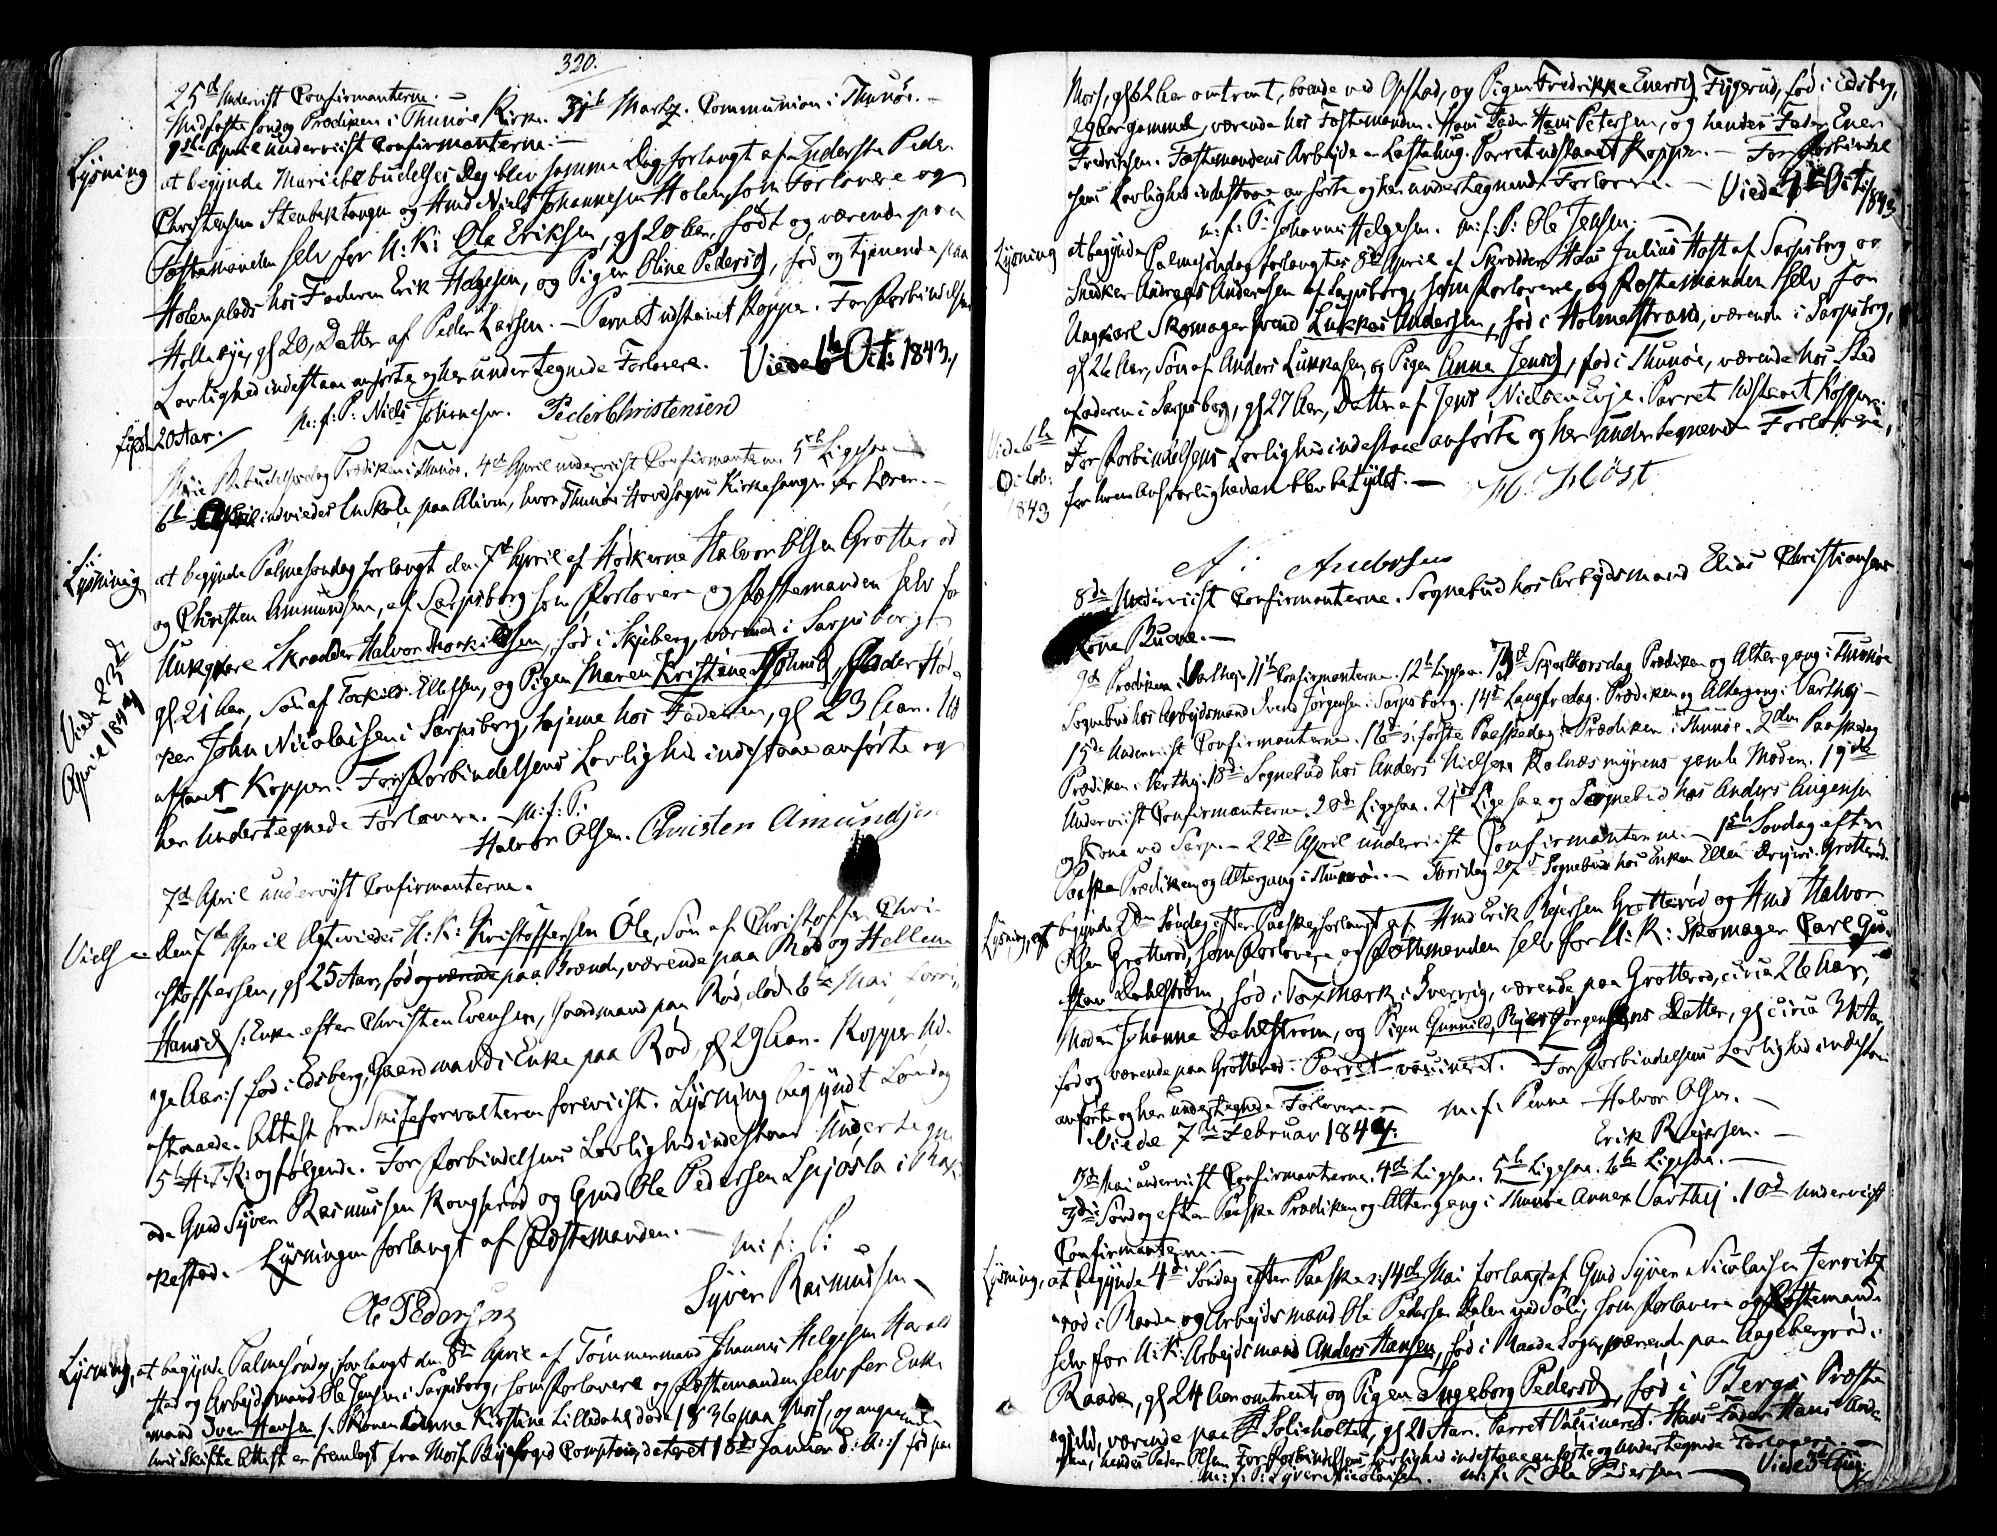 320.
25d Underviist Confirmanterne.
Midfaste Søndag Prædiken i Thunøe Kirke. 31th Martz. Communion i Thunøe.
April underviist Confirmanterne.
Lysning
at begynde Mariæ budelses Dag blev samme Dag forlangt af Inderste Peder
Christensen Stenbektangen og Hmd Niels Johannesen Holen som Forlovere og
Fæstemanden selv for U: K: Ole Eriksen, gl 20 Aar, født og værende paa
Holenplads hos Faderen Erik Hagesen, og Pigen Oline Pedersd, fød og tjenende paa
gl 20, Datter af Peder Larsen. Parret udstaaet Kopper. For Forbindelsens
Lovlighed indestaae anførte og her undertegnede Forlovere. Viede 6te Oct: 1843.
20 Aar.
M: f: P: Niels Johannesen. Peder Christensen
Prædiken i Thunøe. 4de April underviist Confirmanterne. 5th Ligesaa
6th April indviedes En Skole paa Alvim, hvor Thunøe Hovedsogns Kirkesanger er Lærer.
Lysning
at begynde Palmesøndag forlangt den 7d April af Høkerne Halvor Olsen Grotterød
og Christen Ammundsen, af Sarpsborg som Forlovere og Fæstemanden selv for
Ungkarl Skrædder Halvor Torkildsen, fød i Skjeberg, værende i Sarpsborg
gl 21 Aar, Søn af Torkild Ellefsen, og Pigen Maren Kristine Johnsd, Fader Hø-
ker John Nicolaisen i Sarpsborg, hjemme hos Faderen, gl 23 Aar. Ud
staaet Kopper. For Forbindelsens Lovlighed indestaae anførte og
her undertegnede Forlovere. M: f: P:
Viede 23de
April 1844
Halvor Olsen. Christen Amundsen
7d April underviist Confirmanterne.
Vielse
Den 7de April Egteviedes U: K: Kristoffersen Ole, Søn af Christoffer Chri-
stoffersen, gl 25 Aar, fød og værende paa Brænde, værende paa Rød og Hellene
Hansd /: Enke efter Christen Evensen, Gaardmand paa Rød, død 6te Mai forri
ge Aar :/ fød i Edsberg, Gaardmands Enke paa Rød, gl 29 Aar. Kopper Ud-
staaede. Attest fra Skifteforvalteren foreviist. Lysning begyndt Søndag
5 H: T: K: og følgende. For Forbindelsens Lovlighed indestaae Undertegne
de Gmd Syver Rasmussen Kongsrød og Gmd Ole Pedersen Spjøsla i Rok
kestad. Lysningen forlangt af Fæstemanden. M: f: P:
Syver Rasmussen
Ole Pedersen
Lysning,
at begynde Palmesøndag, forlangt den 8de April af Tømmermand Johannes Helgesen Harald
stad og Arbejdsmand Ole Jensen i Sarpsborg, som Forlovere og Fæstemanden selv for Enke
mand Iver Hansen /: Konen Anne Kirstine Lilledahl døde 1836 paa Moss, og angaaende
hvis Skifte Attest er fremlagt fra Moss Byefoged Comptoir, dateret 18de Januar d: A: :/ fød paa
Moss, gl 62 Aar omtrent, boende ved Opstad, og Pigen Fredrikke Enersd Tygerud, fød i Edsberg,
29 Aar gammel, værende hos Fæstemanden. Hans Fader Hans Petersen, og hendes Fader Ener
Fredriksen. Fæstemandens Arbejde er Lasthug. Parret udstaaet Kopper. For Forbindel
sens Lovlighed indestaae anførte og her undertegnede Forlovere. Viede 1te Oct: 1843
m: f: P: Johannes Helgesen. m: f: P: Ole Jensen.
Lysning
at begynde Palmesøndag forlangtes 8de April af Skrædder Hans Julius Høst af Sarpsborg og
Snedker Andreas Andersen af Sarpsborg, som Forlovere, og Fæstemanden selv for
Ungkarl Skomagersvend Lukkas Andersen, fød i Holmestrand, værende i Sarpsborg,
gl 26 Aar, Søn af Anders Lukkasen, og Pigen Anna Jensd, fød i Thunøe, værende hos Sted
faderen i Sarpsborg, gl 27 Aar, Datter af Jens Nielsen Evje. Parret Udstaaet Kopper.
For Forbindelsens Lovlighed indestaae anførte og her undertegnede Forlovere,
for hvem Ansvarligheden blev betydet. H. J. Høst.
Viede 6te
Octob:
1843
A: Andersen
8de Underviist Confirmanterne. Sognebud hos Arbejdsmand Elias Christiansens
Kone Buene.
9de Prædiken i Varthej. 11th Confirmanterne. 12th Ligesaa. 13d Skjærthorsdag Prædiken og Altergang i Thunøe
Sognebud hos Arbejdsmand Svend Jørgensen i Sarpsborg. 14de Langfredag. Prædiken og Altergang i Varthej
15de Underviist Confirmanterne. 16de s: første Paaskedag Prædiken i Thunøe. 2den Paaskedag
Prædiken i Varthej. 18de Sognebud hos Anders Nielsen Kalnæsmyrens gamle Moder. 19de
Underviist Confirmanterne. 20de Ligesaa. 21de Ligesaa og Sognebud hos Anders Augensen
og Kone ved Sarp. 22de April underviist Confirmanterne. 1ste Søndag efter
Paaske Prædiken og Altergang i Thunøe. Torsdag 27de Sognebud hos Enken Ellen Grotterød
Lysning, at
begynde 2den Søndag efter Paaske, forlangt af Hmd Erik Rejersen Grotterød og Hmd Halvor
Olsen Grotterød, som Forlovere og Fæstemanden selv for U: K: Skomager Carl Gu-
stav Dahlstrøm, fød i Toxmark i Sverrig, værende paa Grotterød, circa 26 Aar,
Moder Johanna Dahlstrøm, og Pigen Gunnild Jørgensens Datter, gl circa
fød og værende paa Grotterød. Parret vaccineret. For Forbindelsens Lovlighed indestaae
anførte og her undertegnede Forlovere. M: f: Penne Halvor Olsen.
Viede 7de Februar 1844. Erik Rejersen.
3d Mai underviist Confirmanterne. 4de Ligesaa. 5th Ligesaa. 6th Ligesaa.
3die Søndag efter Paaske Prædiken og Altergang i Thunøe Annex Varthej. 10d underviist
Confirmanterne.
Lysning,
at begynde 4de Søndag efter Paaske s: 14de Mai forlangt af Gmd Syver Nicolaisen Jerrits
rød i Raade og Arbejdsmand Ole Pedersen Dalen ved Sølj som Forlovere og Fæstemanden
selv for U: K: Arbejdsmand Anders Hansen, fød i Raade Sogn, værende paa Aagebergrød i
Raade, gl 24 Aar omtrent, og Pigen Ingeborg Pedersd, fød i Bergs Præste
gjeld, værende paa Solieholtet, gl 21 Aar. Parret Vaccineret. Hans Fader Hans Ande
sen, hendes Peder Olsen. For Forbindelsens Lovlighed indestaae anførte og undertegnede Forlovere.
M: f: P: Syver Nicolaisen. M: f: P: Ole Pedersen Viede